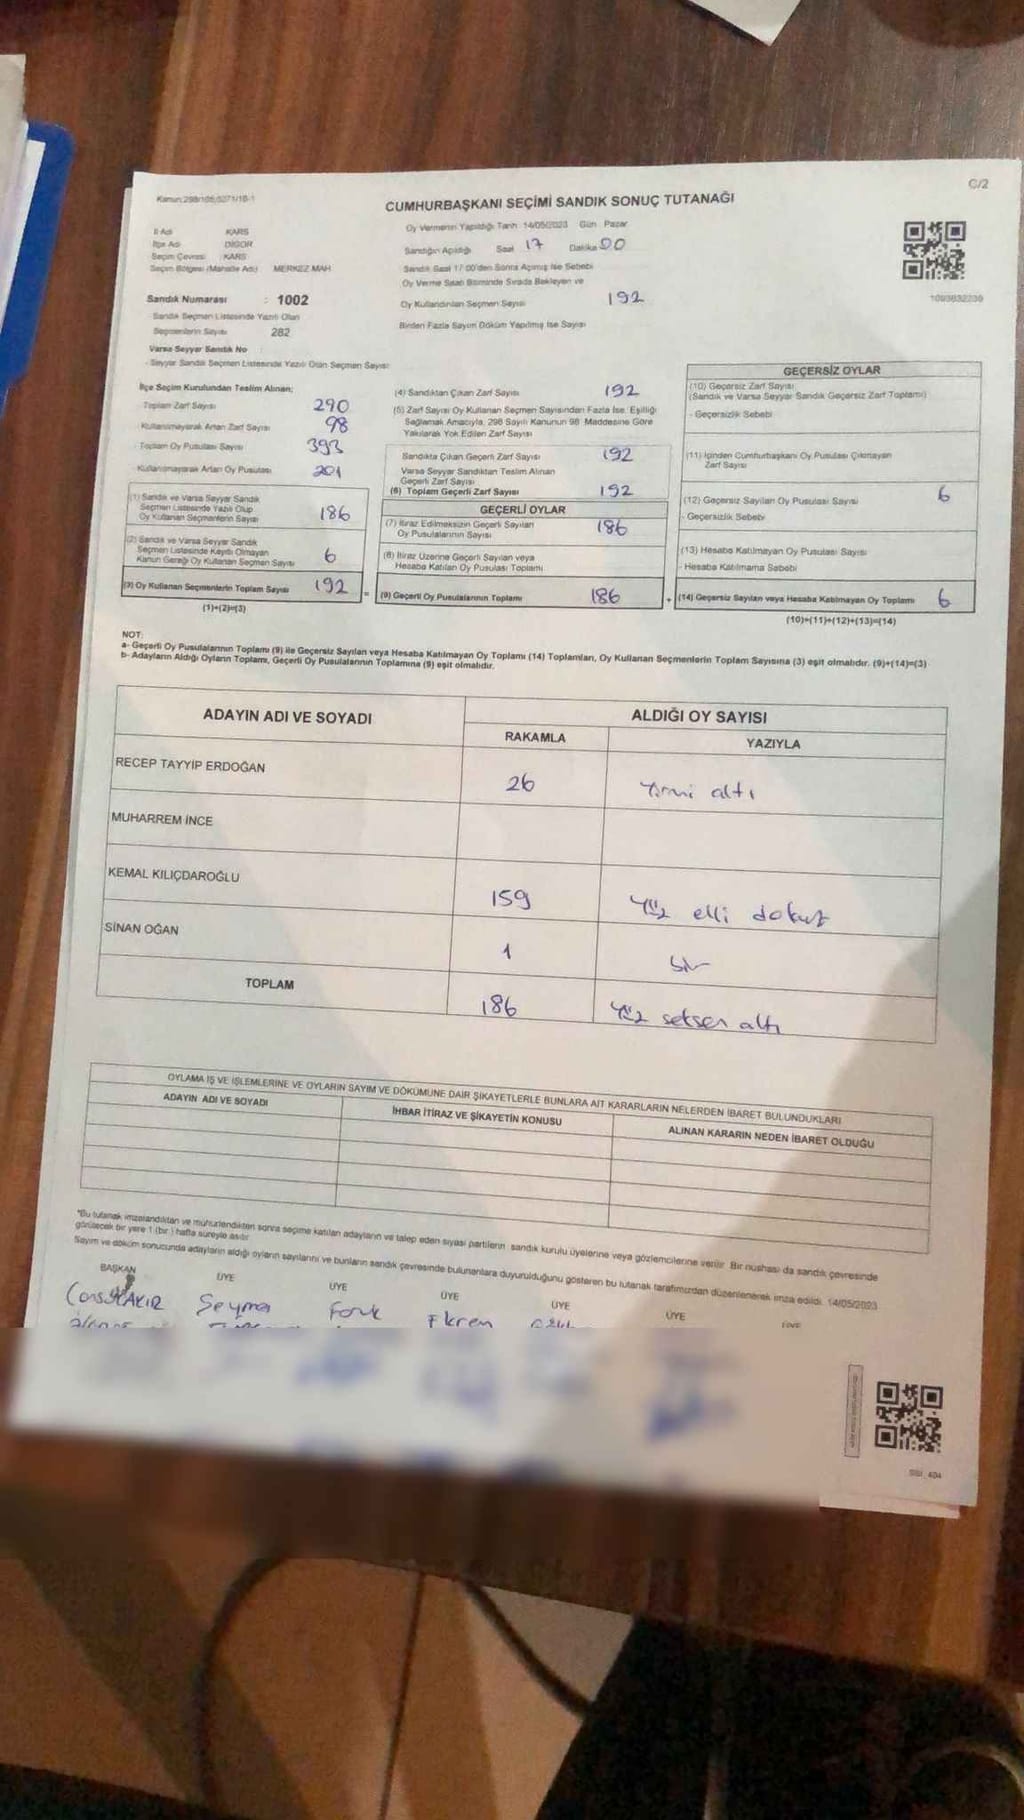 C/2
Kanun:298/105,6271/18-1
CUMHURBAŞKANI SEÇİMİ SANDIK SONUÇ TUTANAĞI
İl Adı KARS
İlçe Adı DİGOR
Seçim Çevresi :KARS
Seçim Bölgesi (Mahalle Adı) MERKEZ MAH
Sandık Numarası : 1002
Sandık Seçmen Listesinde Yazılı Olan
Seçmenlerin Sayısı 282
Varsa Seyyar Sandık No
- Seyyar Sandık Seçmen Listesinde Yazılı Olan Seçmen Sayısı
Oy Vermenin Yapıldığı Tarih 14/05/2023 Gün Pazar
Sandığın Açıldığı Saat 17 Dakika 00
Sandık Saat 17:00'den Sonra Açılmış İse Sebebi
Oy Verme Saati Bitiminde Sırada Bekleyen ve
Oy Kullandırılan Seçmen Sayısı 192
Birden Fazla Sayım Döküm Yapılmış İse Sayısı
1093832239
İlçe Seçim Kurulundan Teslim Alınan;
Toplam Zarf Sayısı 290
Kullanılmayarak Artan Zarf Sayısı 98
Toplam Oy Pusulası Sayısı 393
Kullanılmayarak Artan Oy Pusulası 201
(1) Sandık ve Varsa Seyyar Sandık
Seçmen Listesinde Yazılı Olup
Oy Kullanan Seçmenlerin Sayısı 186
(2) Sandık ve Varsa Seyyar Sandık
Seçmen Listesinde Kaydı Olmayan
Kanun Gereği Oy Kullanan Seçmen Sayısı 6
(3) Oy Kullanan Seçmenlerin Toplam Sayısı 192
(1)+(2)=(3)
(4) Sandıktan Çıkan Zarf Sayısı 192
(5) Zarf Sayısı Oy Kullanan Seçmen Sayısından Fazla İse, Eşitliği
Sağlamak Amacıyla, 298 Sayılı Kanunun 98. Maddesine Göre
Yakılarak Yok Edilen Zarf Sayısı
Sandıkta Çıkan Geçerli Zarf Sayısı 192
Varsa Seyyar Sandıktan Teslim Alınan
Geçerli Zarf Sayısı
(6) Toplam Geçerli Zarf Sayısı 192
GEÇERLİ OYLAR
(7) İtiraz Edilmeksizin Geçerli Sayılan
Oy Pusulalarının Sayısı 186
(8) İtiraz Üzerine Geçerli Sayılan veya
Hesaba Katılan Oy Pusulası Toplamı
= (9) Geçerli Oy Pusulalarının Toplamı 186
GEÇERSİZ OYLAR
(10) Geçersiz Zarf Sayısı
(Sandık ve Varsa Seyyar Sandık Geçersiz Zarf Toplamı)
- Geçersizlik Sebebi
(11) İçinden Cumhurbaşkanı Oy Pusulası Çıkmayan
Zarf Sayısı
(12) Geçersiz Sayılan Oy Pusulası Sayısı 6
- Geçersizlik Sebebi
(13) Hesaba Katılmayan Oy Pusulası Sayısı
- Hesaba Katılmama Sebebi
+ (14) Geçersiz Sayılan veya Hesaba Katılmayan Oy Toplamı 6
(10)+(11)+(12)+(13)=(14)
NOT:
a- Geçerli Oy Pusulalarının Toplamı (9) ile Geçersiz Sayılan veya Hesaba Katılmayan Oy Toplamı (14) Toplamları, Oy Kullanan Seçmenlerin Toplam Sayısına (3) eşit olmalıdır. (9)+(14)=(3)
b- Adayların Aldığı Oyların Toplamı, Geçerli Oy Pusulalarının Toplamına (9) eşit olmalıdır.
ADAYIN ADI VE SOYADI ALDIĞI OY SAYISI
RAKAMLA YAZIYLA
RECEP TAYYİP ERDOĞAN 26 Yirmi altı
MUHARREM İNCE
KEMAL KILIÇDAROĞLU 159 Yüz elli dokuz
SİNAN OĞAN 1 bir
TOPLAM 186 Yüz seksen altı
OYLAMA İŞ VE İŞLEMLERİNE VE OYLARIN SAYIM VE DÖKÜMÜNE DAİR ŞİKAYETLERLE BUNLARA AİT KARARLARIN NELERDEN İBARET BULUNDUKLARI
ADAYIN ADI VE SOYADI İHBAR İTİRAZ VE ŞİKAYETİN KONUSU ALINAN KARARIN NEDEN İBARET OLDUĞU
*Bu tutanak imzalandıktan ve mühürlendikten sonra seçime katılan adayların ve talep eden siyasi partilerin sandık kurulu üyelerine veya gözlemcilerine verilir. Bir nüshası da sandık çevresinde
görülecek bir yere 1 (bir) hafta süreyle asılır.
Sayım ve döküm sonucunda adayların aldığı oyların sayılarını ve bunların sandık çevresinde bulunanlara duyurulduğunu gösteren bu tutanak tarafımızdan düzenlenerek imza edildi. 14/05/2023
BAŞKAN ÜYE ÜYE ÜYE ÜYE ÜYE ÜYE
Şeyma Faruk Ekrem